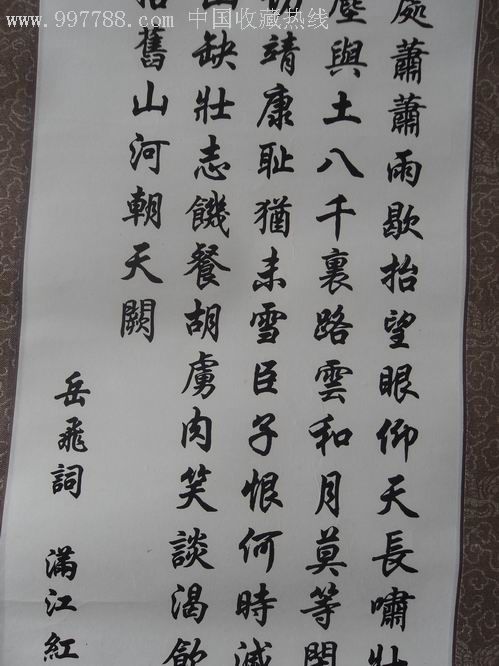 www.997788.com 中国收藏热线
處蕭蕭雨歇抬望眼仰天長嘯壯
塵與土八千裏路雲和月莫等
靖康耻猶未雪臣子恨何時滅
山缺壯志饑餐胡虜肉笑談渴飲
拾舊山河朝天闕
岳飛詞 滿江紅